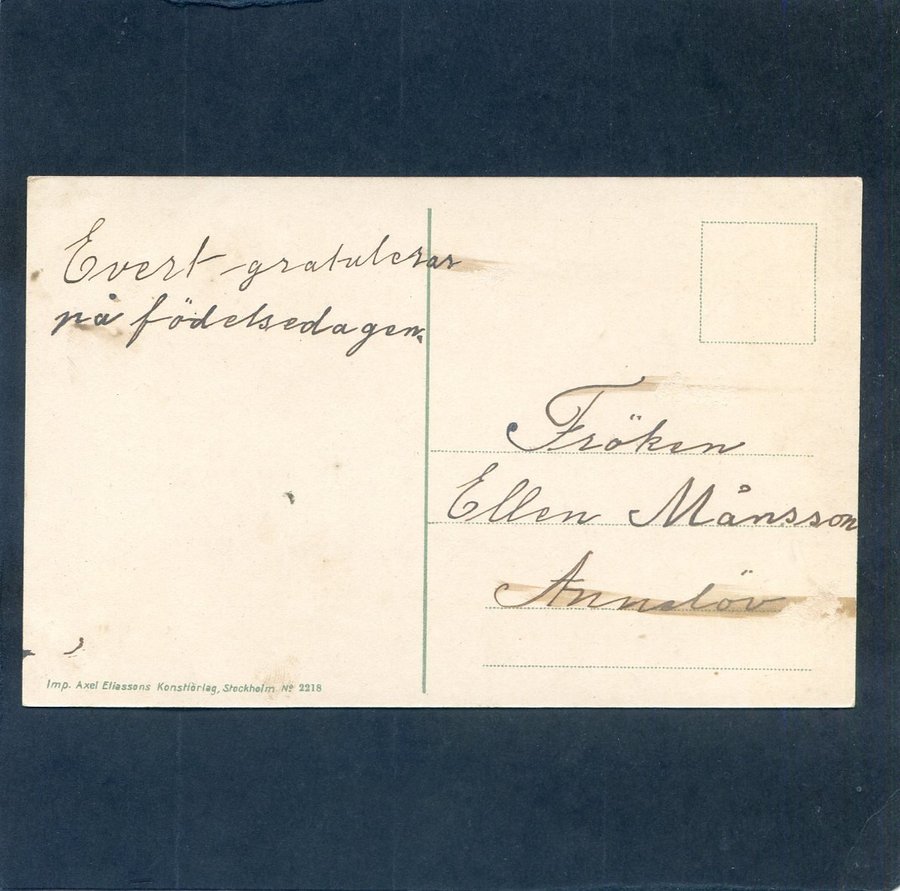 Evert gratulerar
på födelsedagen.
Fröken
Ellen Månsson
Annelöv
Imp. Axel Eliassons Konstförlag, Stockholm Nº 2218